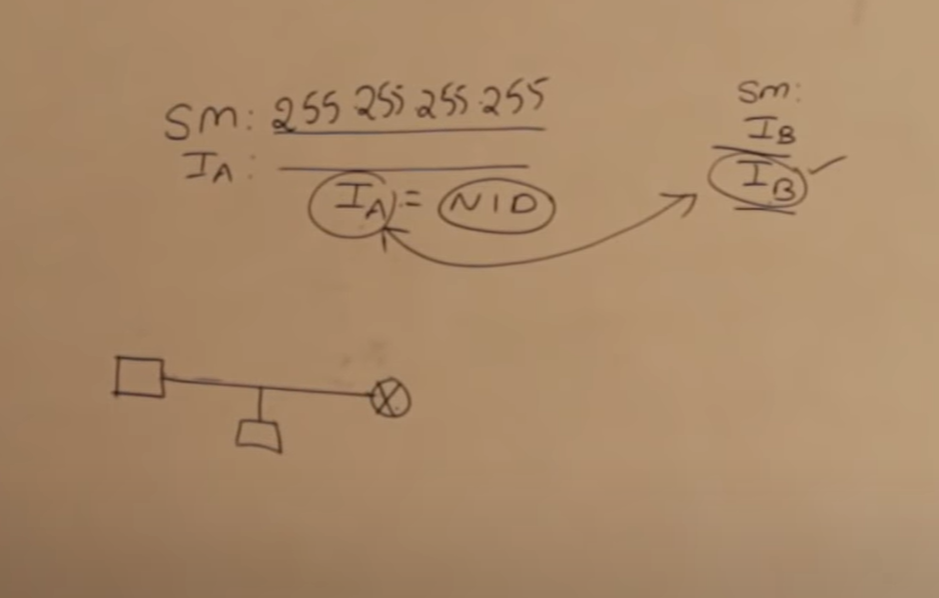 SM: 255 255 255.255
IA:
IA = NID
SM:
IB
IB